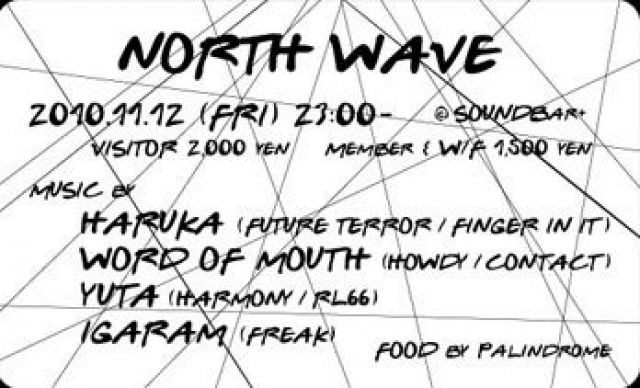 NORTH WAVE
2010.11.12 (FRI) 23:00- @ SOUNDBAR+
VISITOR 2,000 YEN MEMBER & W/F 1,500 YEN
MUSIC BY
HARUKA (FUTURE TERROR / FINGER IN IT)
WORD OF MOUTH (HOWDY / CONTACT)
YUTA (HARMONY / RL66)
IGARAM (FREAK)
FOOD BY PALINDROME